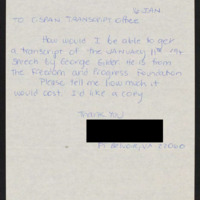 JAN
TO CSPAN TRANSCRIPT OFFICE
How would I be able to get
a transcript of the January 11th
speech by George from
the Freedom and Progress Foundation
Please tell me how much it
would cost. I'd like a copy.
Thank you